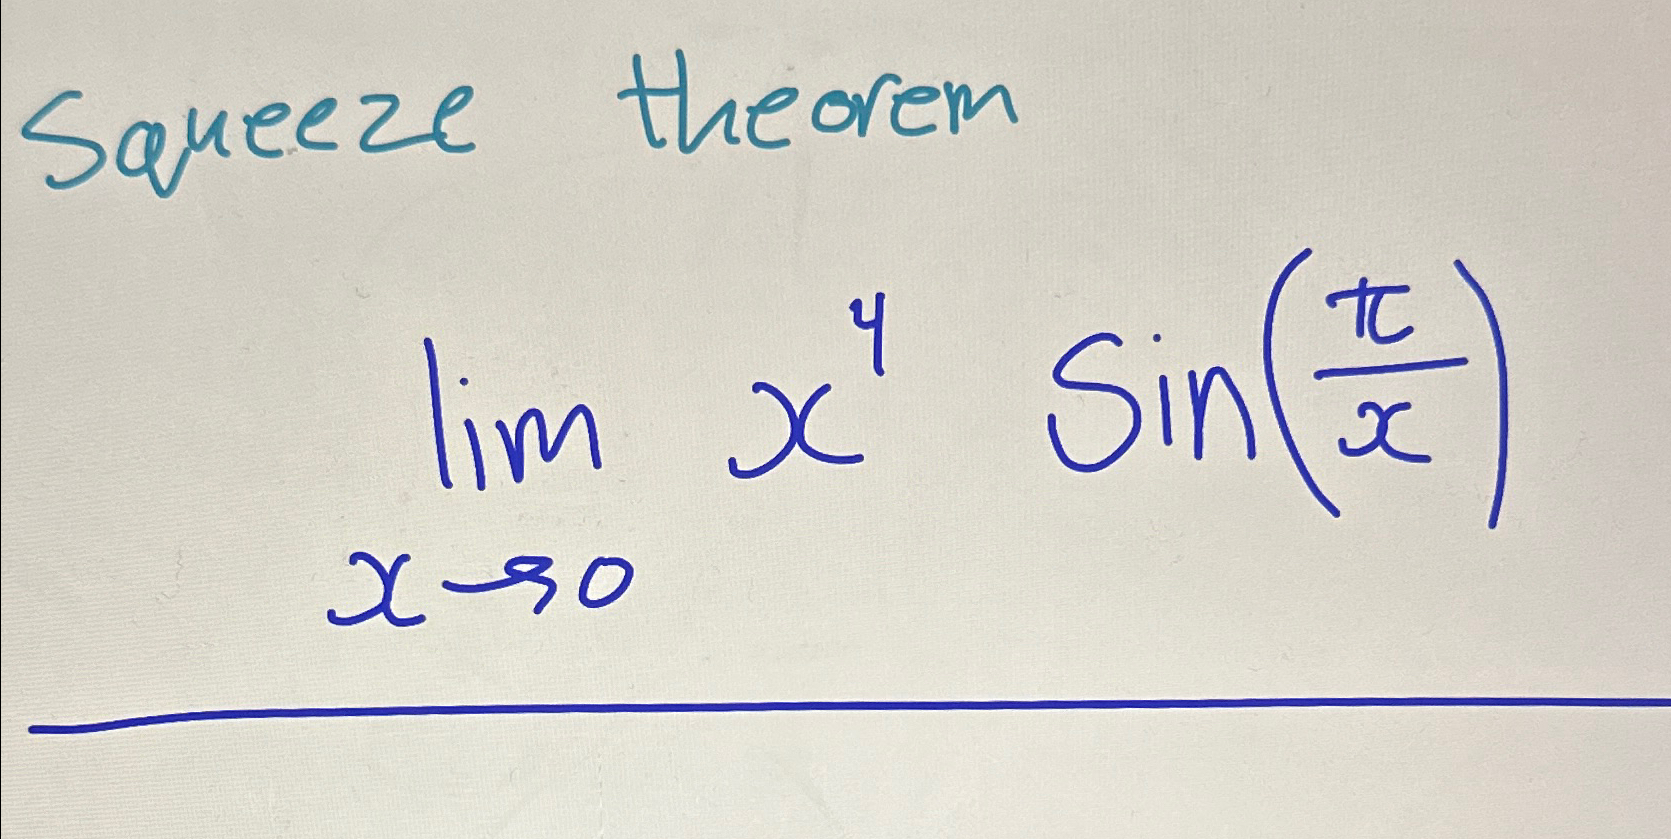 Squeeze theorem
lim x⁴ Sin(π/x)
x→0